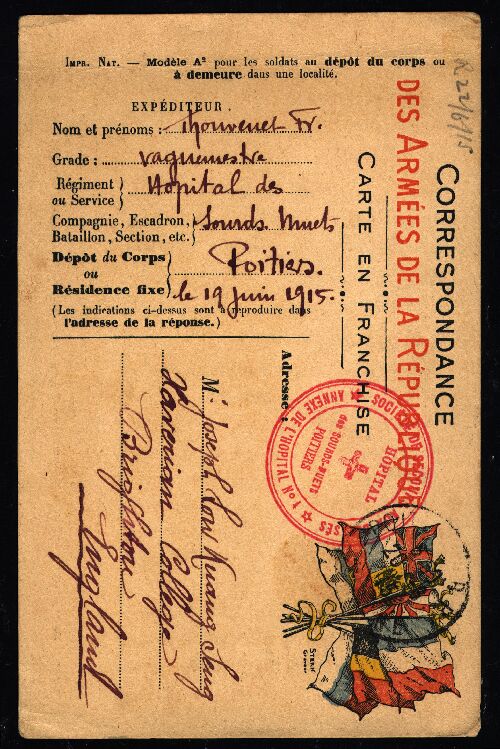 Impr. Nat. — Modèle A² pour les soldats au dépôt du corps ou
à demeure dans une localité.
EXPÉDITEUR.
Nom et prénoms : Thouvenet Fr.
Grade : vaguemestre
Régiment ou Service } Hopital des
Compagnie, Escadron, Bataillon, Section, etc. } Sourds Muets
Dépôt du Corps ou Résidence fixe } Poitiers.
le 19 juin 1915.
(Les indications ci-dessus sont à reproduire dans
l'adresse de la réponse.)
R 22/6/15
CORRESPONDANCE
DES ARMÉES DE LA RÉPUBLIQUE
CARTE EN FRANCHISE
Adresse :
M. Joseph Kuang Seng
Xaverian College
Brighton
England
ANNEXE DE L'HOPITAL
HOPITAL
des SOURDS-MUETS
POITIERS
STERN
Graveur